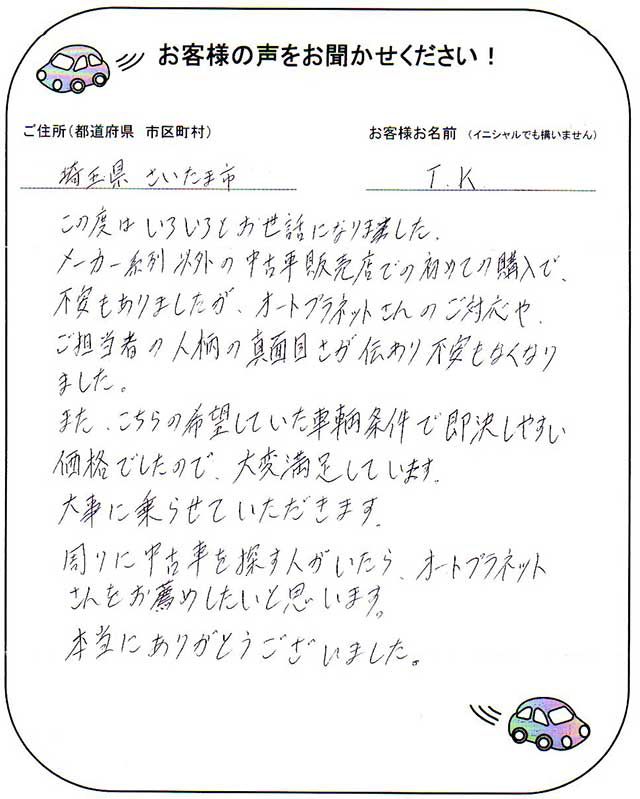 お客様の声をお聞かせください！
ご住所(都道府県 市区町村)
お客様お名前 (イニシャルでも構いません)
埼玉県 さいたま市
T.K
この度はいろいろとお世話になりました.
メーカー系列以外の中古車販売店での初めての購入で、
不安もありましたが、オートプラネットさんのご対応や、
ご担当者の人柄の真面目さが伝わり不安もなくなり
ました。
また、こちらの希望していた車輌条件で即決しやすい
価格でしたので、大変満足しています.
大事に乗らせていただきます.
周りに中古車を探す人がいたら、オートプラネット
さんをお薦めしたいと思います。
本当にありがとうございました。